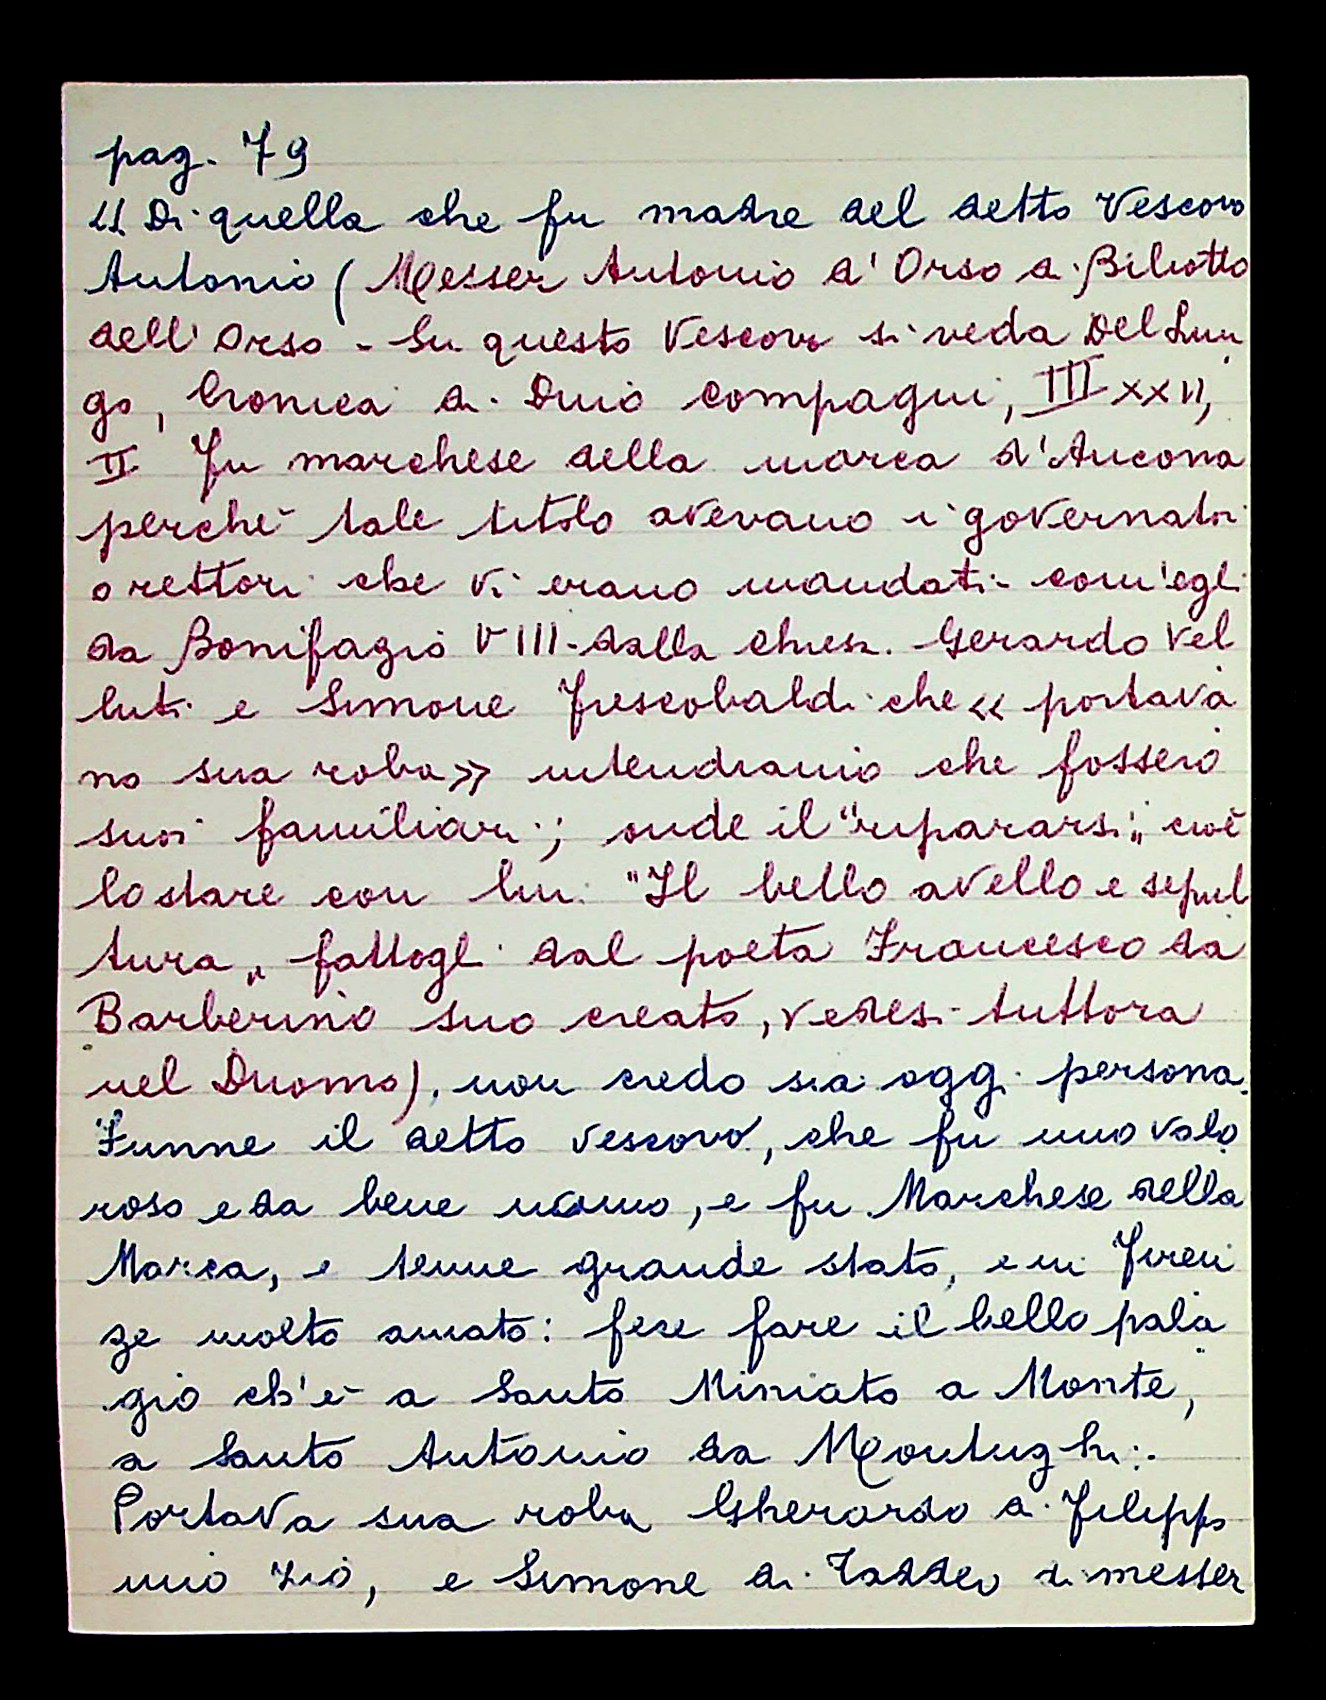 pag. 79
"Di quella che fu madre del detto Vescovo
Antonio (Messer Antonio d'Orso di Biliotto
dell'Orso - Su questo Vescovo si veda Del Lun
go, Cronica di Dino Compagni, III XXII,
II Fu marchese della marca d'Ancona
perchè tale titolo avevano i governatori
o rettori che vi erano mandati - com'egli
da Bonifazio VIII - dalla chiesa. Gerardo Vel
luti e Simone Frescobaldi che « portava
no sua roba » intendiamo che fossero
suoi familiari; onde il "ripararsi" cioè
lo stare con lui. "Il bello avello e sepul
tura" fattogli dal poeta Francesco da
Barberino suo creato, vedesi tuttora
nel Duomo), non credo sia oggi persona.
Funne il detto vescovo, che fu uno valo
roso e da bene uomo, e fu Marchese della
Marca, e tenne grande stato, e in Firen
ze molto amato: fese fare il bello pala
gio ch'è a Santo Miniato a Monte,
a Santo Antonio da Montughi.
Portava sua roba Gherardo di Filippo
mio zio, e Simone di Taddeo di messer